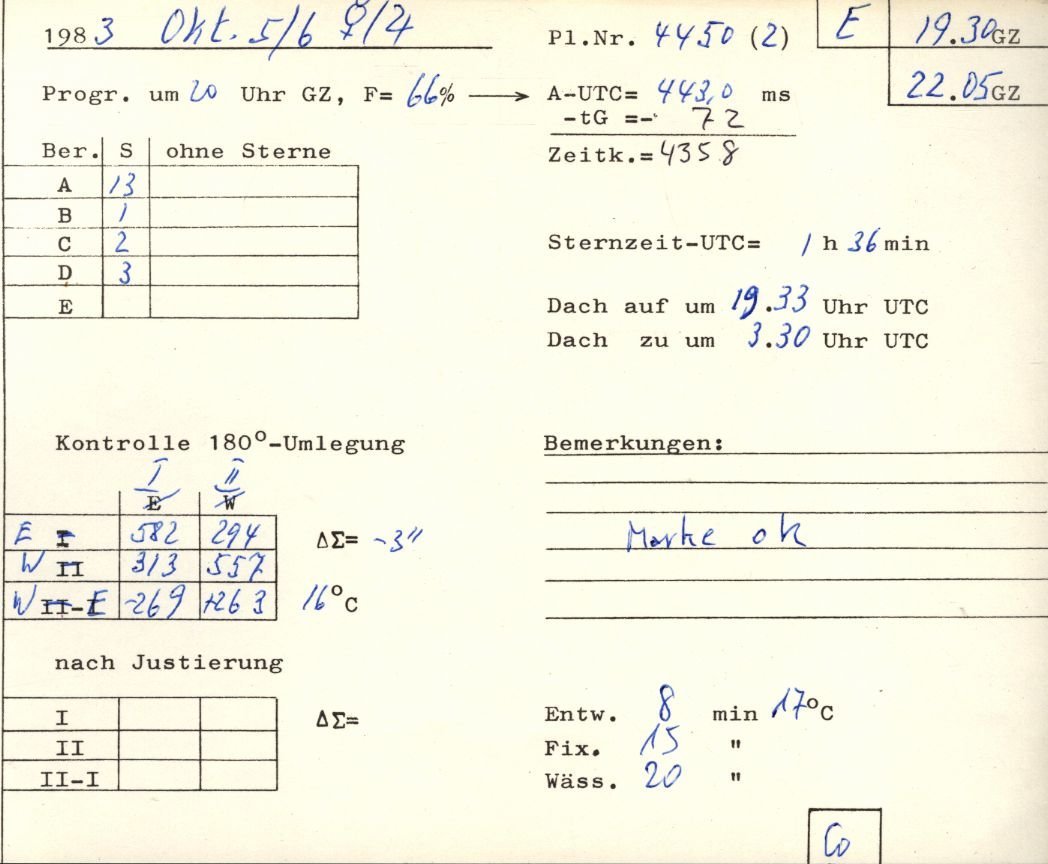 1983 Okt. 5/6 ☿/♃ Pl.Nr. 4450 (2) E 19.30 GZ
22.05 GZ
Progr. um 20 Uhr GZ, F= 66% → A-UTC= 443,0 ms
-tG =- 7 2
Zeitk.= 435 8
Ber. S ohne Sterne
A 13
B 1
C 2
D 3
E
Sternzeit-UTC= 1 h 36 min
Dach auf um 19.33 Uhr UTC
Dach zu um 3.30 Uhr UTC
Kontrolle 180°-Umlegung
I II
E W
E I 582 294 ΔΣ= -3"
W II 313 557
W II-I E -269 +263 16°C
Bemerkungen:
Marke ok
nach Justierung
I ΔΣ=
II
II-I
Entw. 8 min 17°C
Fix. 15 "
Wäss. 20 "
Co